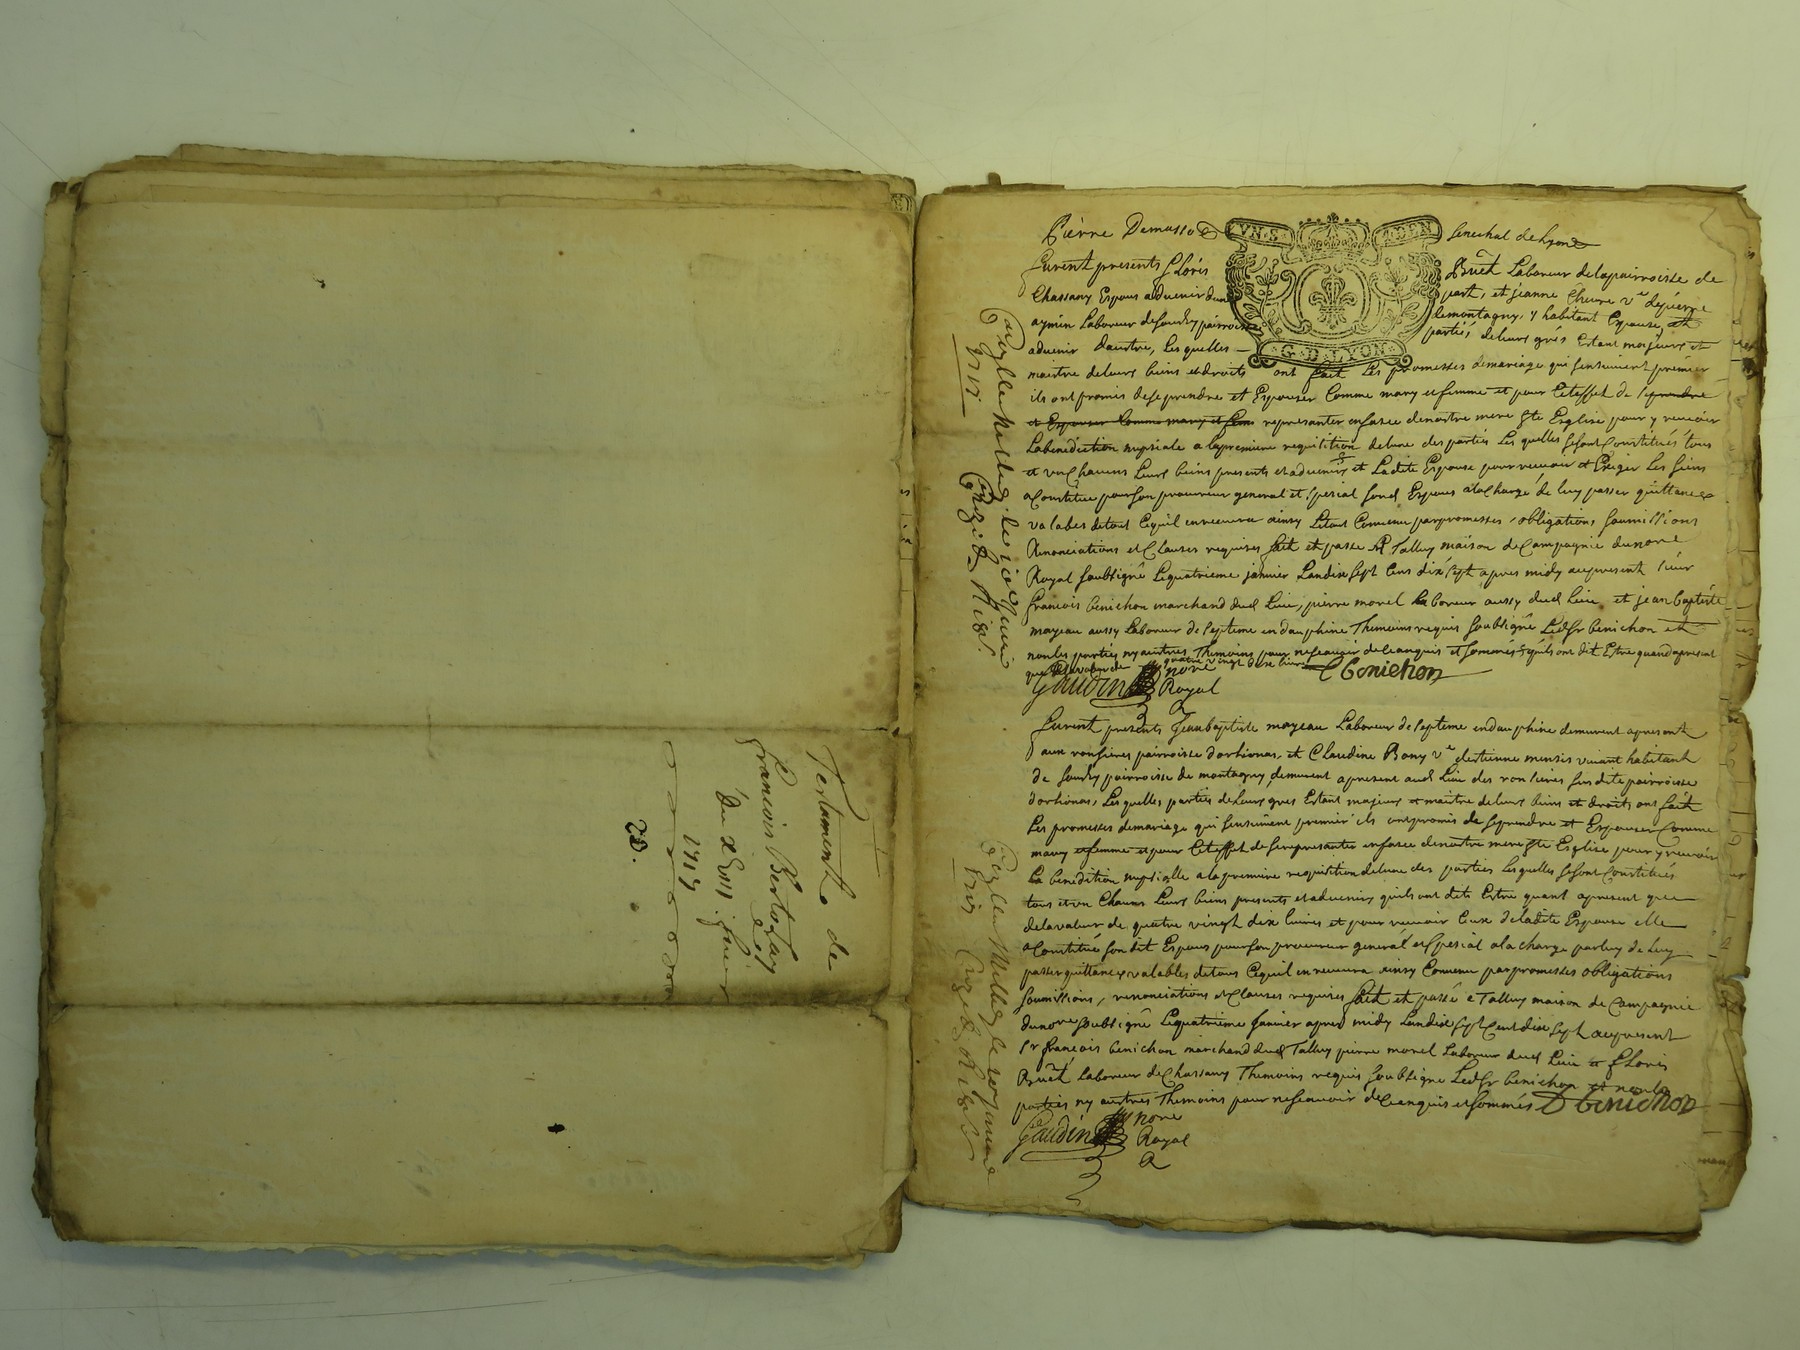 Testament de
francois Bertolay
Du xviii juin
1717
20.
Pierre Demasso
VN·S
4·DEN
senechal de Lyon
furent presents floris
Bruet Laboreur de la pairroisse de
Chassany Espoux advenir dune
part, et jeanne Cheure ve de pierre
aymin Laboreur de fourby pairroisse
de montagny, y habitant Espouse
advenir dautre, Les quelles
parties de leurs grés Estant majeurs et
·G·D·LYON·
maitre de leurs biens et droits ont fait Les promesses de mariage qui sensuivent premier
ils ont promis de se prendre et Espouser Comme mary et femme et pour Cet effet de se prendre
et Espouser Comme mary et fem representer enfasce de nostre mere Ste Eglise pour y recevoir
La benediction nuptiale a la premiere requisition de lune des parties Les quelles se sont Constitués tous
et un Chacuns Leurs biens presents et advenirs et La dite Espouse pour recevoir et Exiger Les siens
a Constitué pour son procureur general et special son d Espoux a la Charge de luy passer quittances
valables de tout Ce quil en recevra ainsy Le tout Convenu par promesses, obligations soumissions
Renonciations et Clauses requises fait et passé a Talluy maison de Campagnie du nore
Royal soubsigné Le quatrieme janvier Lan dix sept Cens dix sept apres midy au present sieur
francois benichon marchand dud Lieu, pierre morel Laboreur aussy dud Lieu et jean baptiste
mayeau aussy Laboreur de septeme en dauphine Themoins requis soubsigné Led Sr benichon et
non les parties ny autres Themoins pour ne scavoir de Ce enquis et sommés quils ont dit Estre quand a present
que de la valeur de quatre vingt dix livres
Gaudin nore Royal
benichon
furent presents Jean baptiste mayeau Laboreur de septeme en dauphine demeurant a present
aux ronsieres pairroisse dorlienas, et Claudine Bony ve destienne mensis vivant habitant
de fourby pairroisse de montagny, demeurant a present aud Lieu des ronsieres susdite pairroisse
dorlienas, Les quelles parties de Leurs grés Estant majeurs et maitre de leurs biens et droits ont fait
Les promesses de mariage qui sensuivent premier ils ont promis de se prendre et Espouser Comme
mary et femme et pour Cet effet de se representer enfasce de nostre mere Ste Eglise pour y recevoir
La benediction nuptielle a la premiere requisition de lune des parties Les quelles se sont Constitués
tous et un Chacuns Leurs biens presents et advenirs quils ont dit Estre quant apresent que
de la valeur de quatre vingt dix livres et pour recevoir Ceux de la dite Espouse elle
a Constitué son dit Espoux pour son procureur general et special a la charge par luy de Luy
passer quittances valables de tous Ce quil en recevra ainsy Convenu par promesses obligations
soumissions, renonciations et Clauses requises fait et passé a Talluy maison de Campagnie
du nore soubsigné Le quatrieme Janvier apres midy Lan dix sept Cent dix sept au present
Sr francois benichon marchand dud Talluy pierre morel Laboreur dud Lieu et floris
Bruet Laboreur de Chassany Themoins requis soubsigné Led Sr benichon et non les
parties ny autres Themoins pour ne scavoir de Ce enquis et sommés
benichon
Gaudin nore
Royal